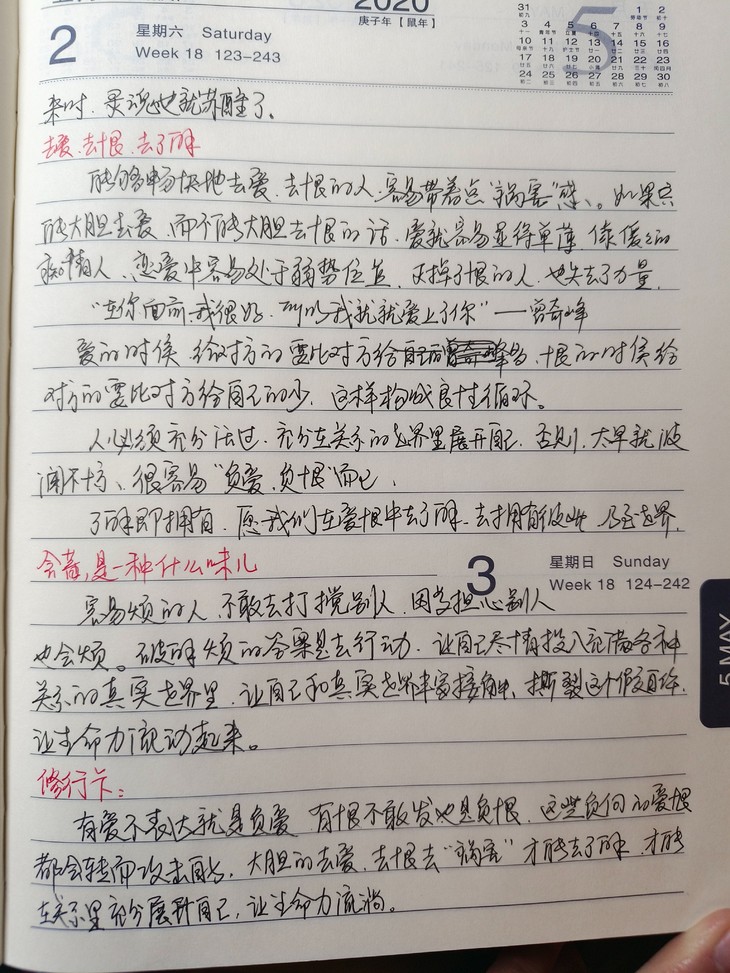 2020
庚子年【鼠年】
2
星期六 Saturday
Week 18 123-243
5
31 1 2
3 4 5 6 7 8 9
10 11 12 13 14 15 16
17 18 19 20 21 22 23
24 25 26 27 28 29 30
来时,灵魂也就苏醒了。
去爱、去恨、去了解
能够畅快地去爱、去恨的人,容易带着点“祸害”感。如果只
能大胆去爱,而不能大胆去恨的话,爱就容易显得单薄,像傻的
痴情人,恋爱中容易处于弱势位置,灭掉了恨的人,也失去了力量。
“在你面前我很好,所以我就就爱上了你”——曾奇峰
爱的时候,给对方的要比对方给自己的多,恨的时候给
对方的要比对方给自己的少,这样构成良性循环。
人必须充分活过,充分在关系的世界里展开自己,否则,太早就波
澜不惊,很容易“负爱,负恨”而已。
了解即拥有,愿我们在爱恨中去了解、去拥有彼此,乃至世界。
含蓄,是一种什么味儿
3
星期日 Sunday
Week 18 124-242
容易烦的人,不敢去打搅别人,因为担心别人
也会烦。破解烦的答案是去行动,让自己尽情投入充满各种
关系的真实世界里,让自己和真实世界丰富接触,撕裂这个假自体,
让生命力流动起来。
修行卡:
有爱不表达就是负爱,有恨不敢发也是负恨,这些负向的爱恨
都会转而攻击自己,大胆的去爱、去恨去“祸害”才能去了解,才能
在关系里充分展开自己,让生命力流淌。
5 MAY